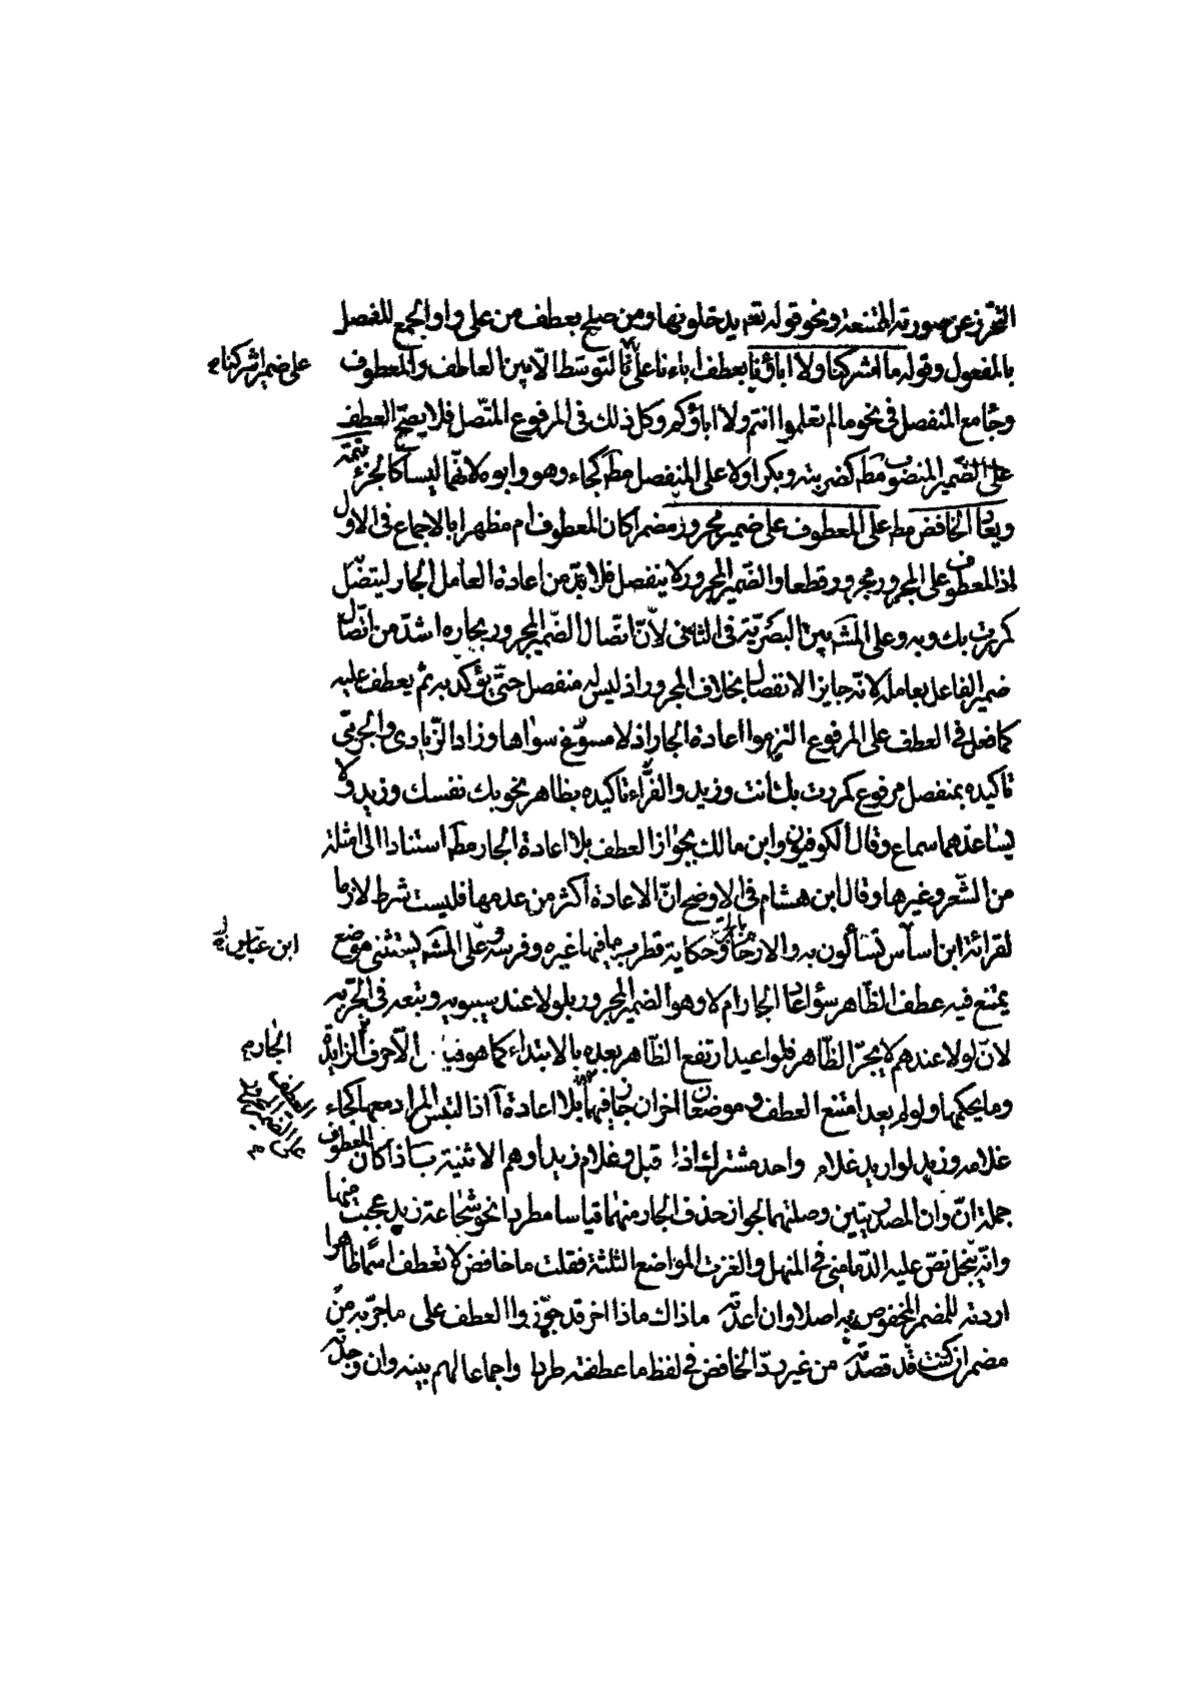 التحرز عن صورته الممتنعة ونحو قوله تعم يدخلونها ومن صلح بعطف من على واو الجمع للفصل
بالمفعول وقوله ما اشركنا ولا اباؤنا بعطف اباءنا على نا لتوسط لا بين العاطف والمعطوف
على ضمير اشركنا
وجامع المنفصل في نحو ما لم تعلموا انتم ولا اباؤكم وكل ذلك في المرفوع المتصل فلا يصح العطف
على الضمير المنصوب مط كضربته وبكرا ولا على المنفصل مط كجاء وهو وابوه لانهما ليسا كالجزء تتمة
ويعاد الخافض مط على المعطوف على ضمير مجرور مضمرا كان المعطوف ام مظهرا بالاجماع في الاول
اذ المعطوف على المجرور مجرور قطعا والضمير المجرور لا ينفصل فلا بد من اعادة العامل الجار ليتصل
كمررت بك وبه وعلى المشه بين البصرية في الثاني لان اتصال الضمير المجرور بجاره اشد من اتصال
ضمير الفاعل بعامله لانه جايز الانفصال بخلاف المجرور اذ ليس له منفصل حتى يؤكد به ثم يعطف عليه
كما فعل في العطف على المرفوع التزموا اعادة الجار اذ لا مسوغ سواها وزاد الزيادي والجرمي
تاكيده بمنفصل مرفوع كمررت بك انت وزيد والفراء تاكيده بظاهر نحو بك نفسك وزيد ولا
يساعدهما سماع وقال الكوفيون وابن مالك بجواز العطف بلا اعادة الجار مط استنادا الى امثلة
من الشعر وغيرها وقال ابن هشام في الاوضح ان الاعادة اكثر من عدمها فليست شرط لازما
لقرائة ابن اساس تسألون به والارحام بالجر وحكاية قطرب ما فيها غيره وفرسه وعلى المشه يستثنى موضع
ابن عباس
يمتنع فيه عطف الظاهر سواء اعاد الجار ام لا وهو الضمير المجرور بلولا عند سيبويه وتبعه في الجر به
لان لولا عندهم لا يجر الظاهر فلو اعيد ارتفع الظاهر بعده بالابتداء كما هو الاحرف الزايدة
الجار
وما يحكمها ولو لم يعد امتنع العطف وموضعان اخران جاز فيهما بلا اعادة اذا التبس المراد معها كجاء
العطف على الضمير المجرور
غلامه وزيد لو اريد غلام واحد مشترك اذا قيل وغلام زيد اوهم الاثنينية اذا كان المعطوف
جملة ان وان المصدريتين وصلتهما لجواز حذف الجار منهما قياسا مطردا نحو شجاعة زيد عجبت منها
وانه بخل نص عليه الدماميني في المنهل والغزت المواضع الثلثة فقلت ما خافض لا تعطف اسما ظاهرا
اردته للمضمر المخفوض به اصلا وان اعدته ماذاك ماذا اخر قد جوزوا العطف على ما جر به من
مضمر ان كنت قد قصدته من غير رد الخافض في لفظ ما عطفته طردا واجماعا لهم بينه وان وجدته